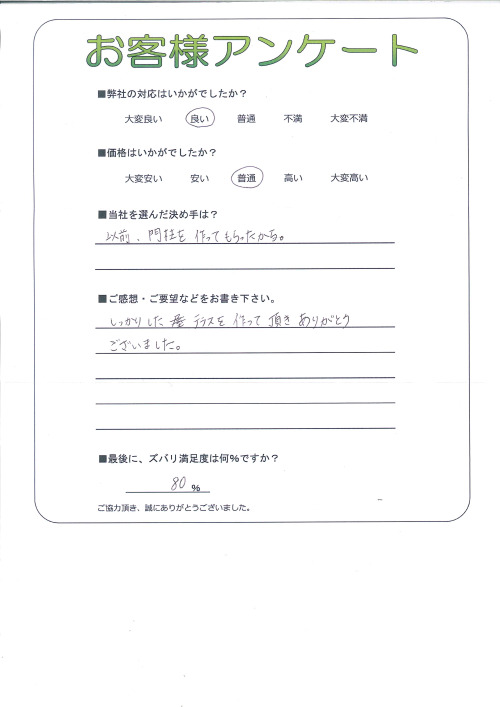 お客様アンケート
■弊社の対応はいかがでしたか？
大変良い 良い 普通 不満 大変不満
■価格はいかがでしたか？
大変安い 安い 普通 高い 大変高い
■当社を選んだ決め手は？
以前、門柱を作ってもらったから。
■ご感想・ご要望などをお書き下さい。
しっかりした テラスを作って頂きありがとう
ございました。
■最後に、ズバリ満足度は何％ですか？
80 ％
ご協力頂き、誠にありがとうございました。